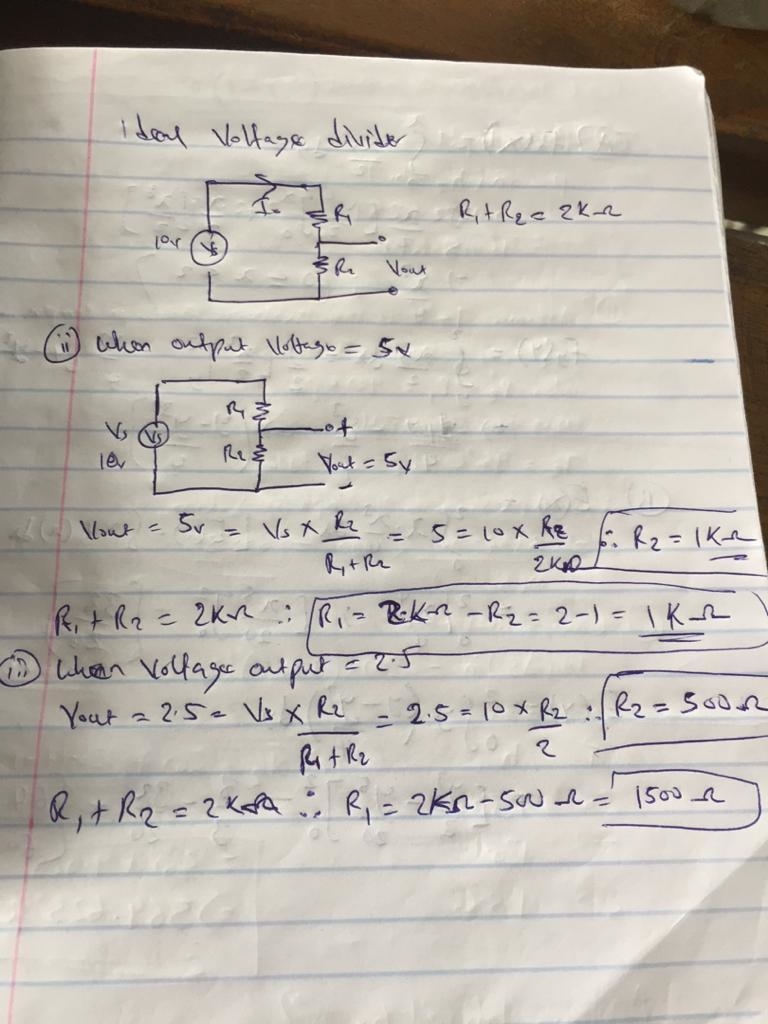 ideal Voltage divider
I₀ R₁ R₁ + R₂ = 2KΩ
10v Vs R₂ Vout
(ii) When output Voltage = 5v
R₁ +
Vs Vs R₂ Vout = 5v
10v -
Vout = 5v = Vs × R₂/(R₁+R₂) = 5 = 10 × R₂/2KΩ ∴ R₂ = 1KΩ
R₁ + R₂ = 2KΩ ∴ R₁ = 2KΩ - R₂ = 2-1 = 1KΩ
(iii) When Voltage output = 2.5
Vout = 2.5 = Vs × R₂/(R₁+R₂) = 2.5 = 10 × R₂/2 ∴ R₂ = 500Ω
R₁ + R₂ = 2KΩ ∴ R₁ = 2KΩ - 500Ω = 1500Ω